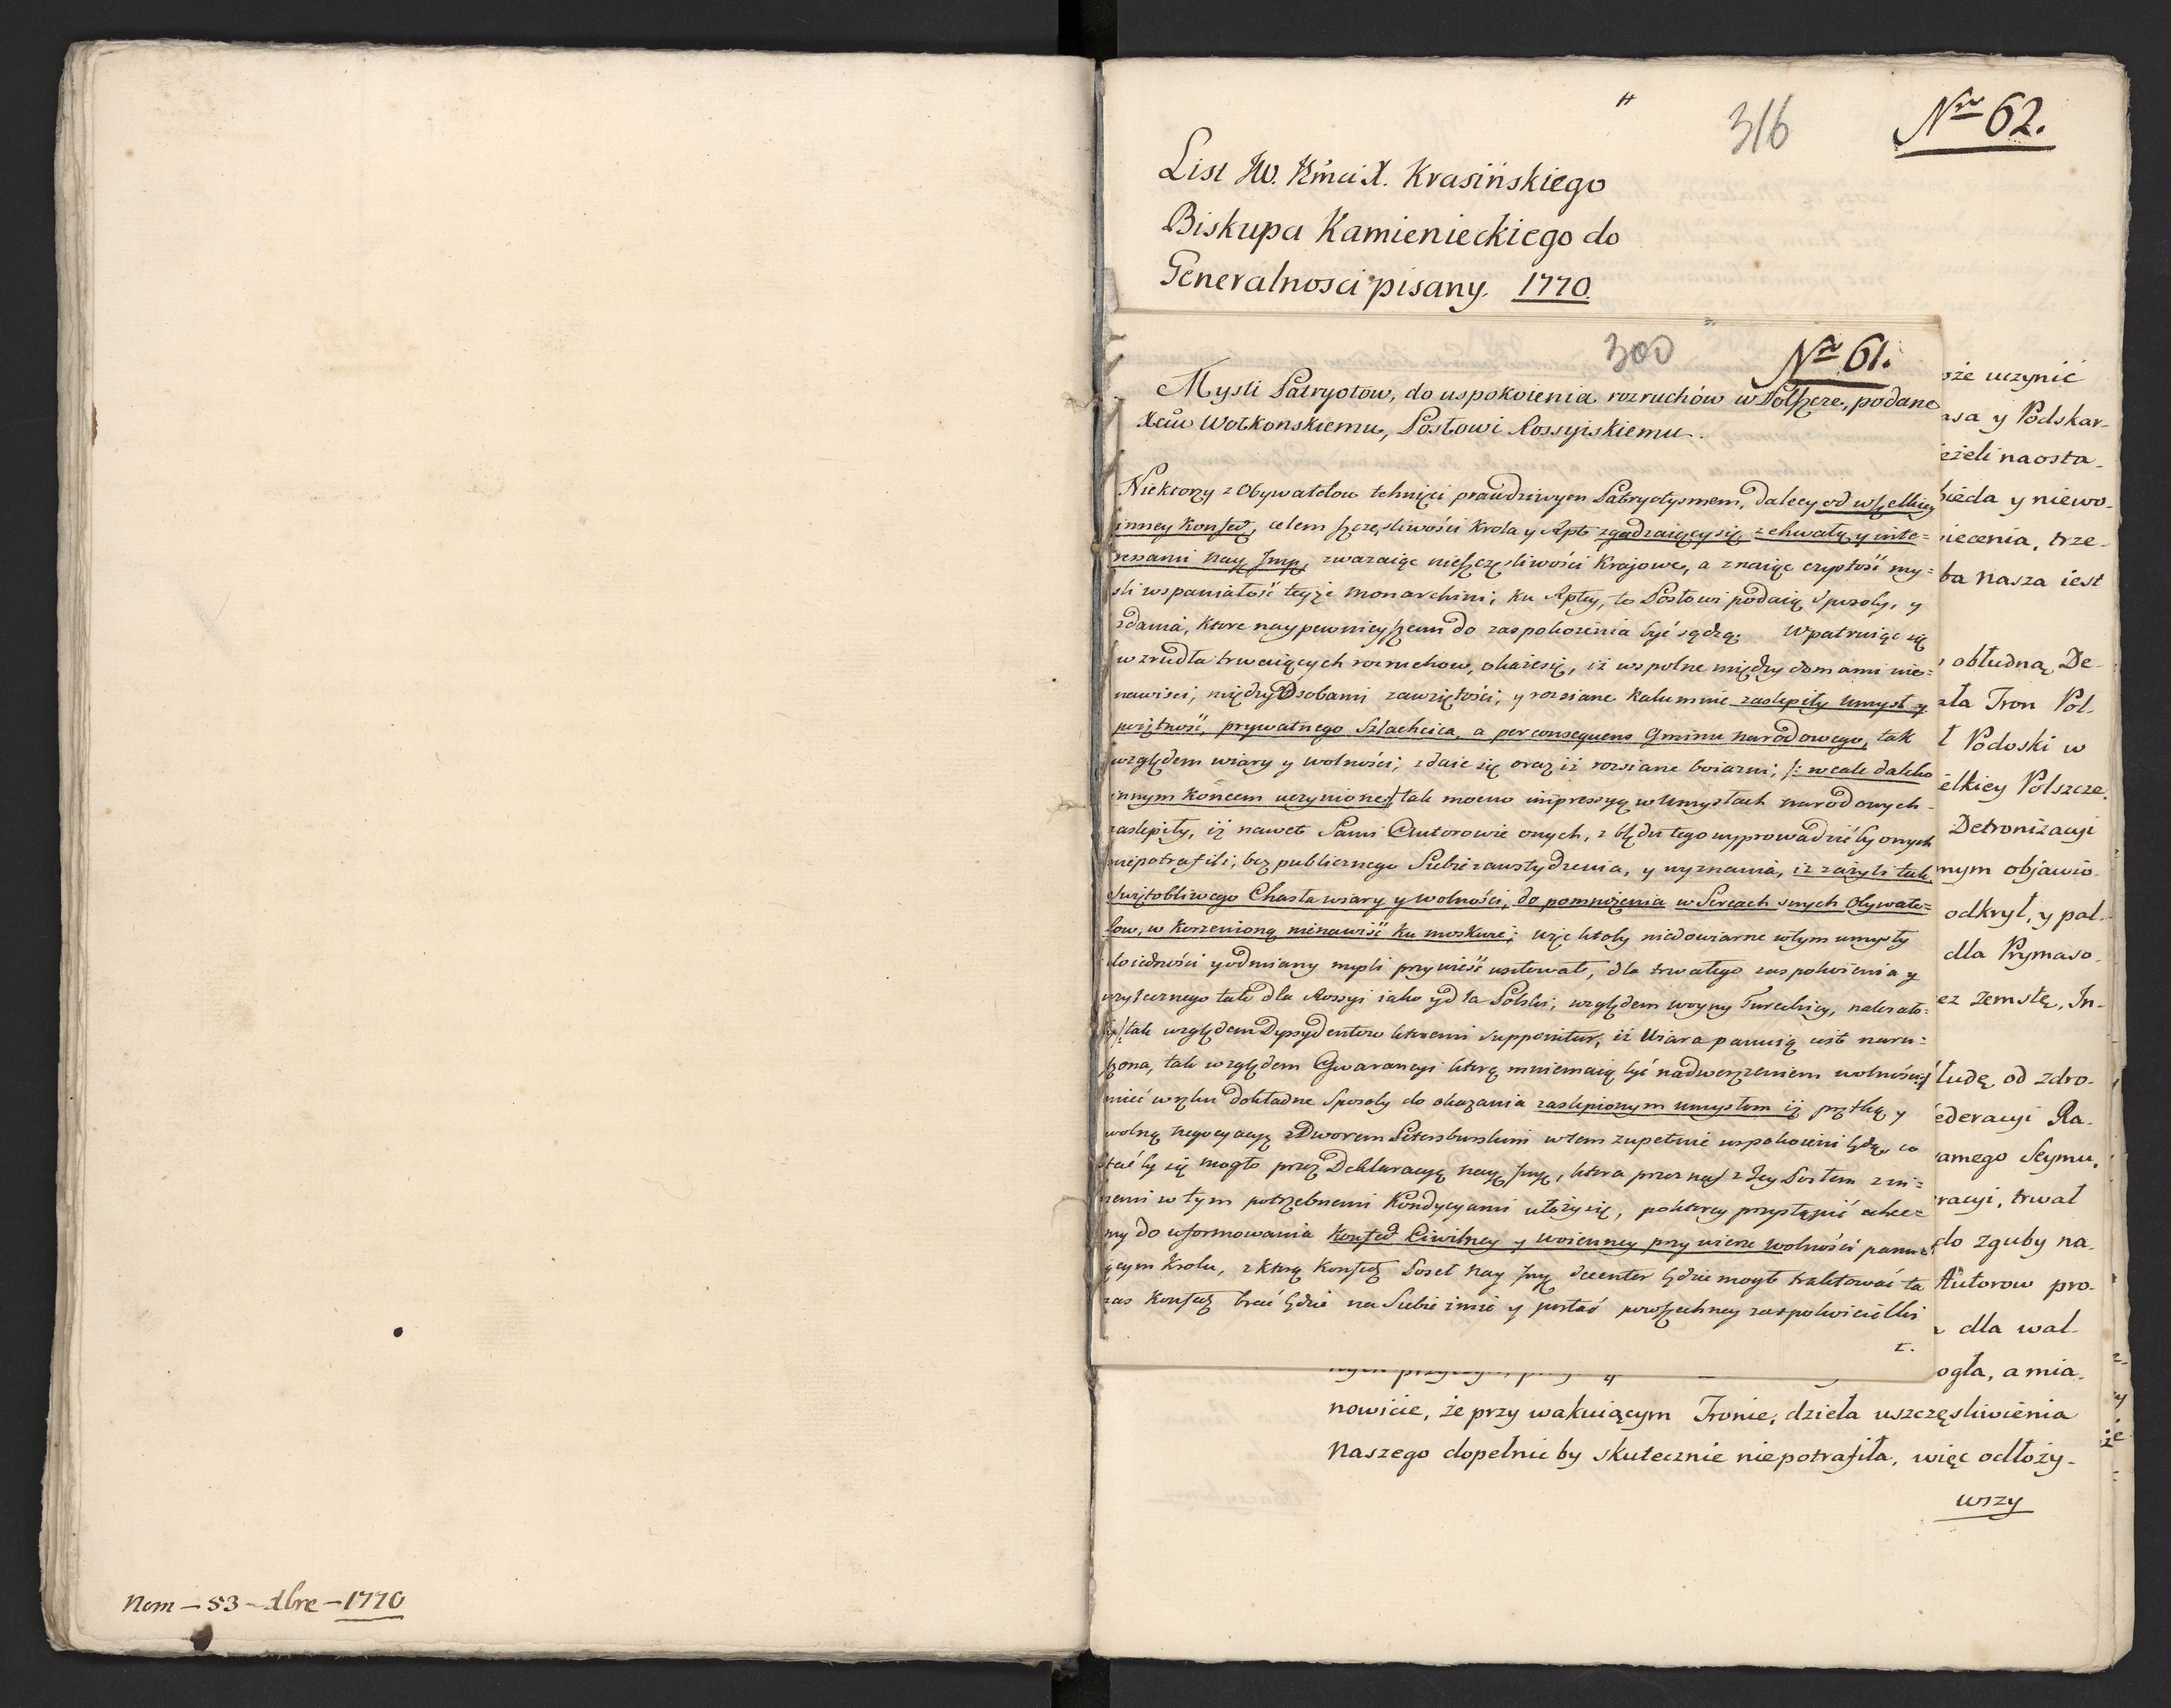 Nom – 53 – xbre – 1770
316
Nro 62.
List JW. Jmci X. Krasińskiego
Biskupa Kamienieckiego do
Generalnosci pisany. 1770.
300
Nro 61.
Mysli Patryotow, do uspokoienia rozruchów w Polszcze, podane
Xciu Wołkonskiemu, Posłowi Rossyiskiemu.
Niektorzy z Obywatelow tchnięci prawdziwym Patryotysmem, dalecy od wszelkiey
inney Konfed, celem szczęsliwości Krola y Rptt zgadzaiący się z chwałą y inte=
ressami Nayj Jmp, zwazaiąc nieszczęsliwości Krajowe, a znaiąc czystość my=
sli wspaniałość teyże Monarchini, ku Rptey, te Posłowi podaią Sposoby, y
zdania, ktore naypewnieyszemi do zaspokoienia być sądzą. Wpatruiąc się
w zrudła trwaiących rozruchow, okaże się, iż wspolne między domami nie=
nawisci, między Osobami zawziętości, y rozsiane Kalumnie zaslepiły Umysł y
poiętność, prywatnego Szlachcica, a per consequens Gminu narodowego, tak
względem wiary y wolności, zdaie się oraz iż rozsiane boiazni, /: wcale daleko
innym Koncem uczynione :/ tak mocno impressyą w Umysłach narodowych
zaslepiły, iż nawet Sami Autorowie onych, z błędu tego wyprowadzić by onych
niepotrafili, bez publicznego Siebie zawstydzenia, y wyznania, iz zażyli tak
Swiętobliwego Chasła wiary y wolności, do pomnożenia w Sercach swych Obywate=
low, w Korzenioną nienawiść ku Moskwie; więc ktoby niedowiarne w tym umysły
do iedności y odmiany mysli przywieść usiłował, dla trwałego zaspokoienia y
uzytecznego tak dla Rossyi iako y dla Polski, względem woyny Tureckiey, należało=
by, tak względem Dyssydentow ktoremi supponitur, iż Wiara panuiąca iest naru=
szona, tak względem Gwarancyi ktorą mniemaią być nadwerężeniem wolności
mieć w ręku dokładne Sposoby do okazania zaslepionym umysłom iż prędką y
wolną negocyacyą z Dworem Petersburskim w tem zupełnie uspokoieni będą, co
stać by się mogło przez Deklaracyą Nayj Jmp, ktora przez nas z Jey Posłem z in=
nemi w tym potrzebnemi Kondycyami ułoży się, po ktorey przystąpić chce=
my do uformowania Konfed Ciwilney y woienney przy wierze wolności panui=
ącym Krolu, z ktorą Konfed Poseł Nayj Jmp decenter będzie mogł traktować ta
zas Konfed brać będzie na Siebie imie y postać powszechney zaspokoicielki
oże uczynić
asa y Podskar-
eżeli na osta-
bieda y niewo-
iecenia, trze-
ba nasza iest
obłudną De-
ała Tron Pol-
ł Podoski w
elkiey Polszcze.
Detronizacyi
nym objawio-
odkrył, y pal-
dla Prymaso-
ez zemstę, In-
ludę od zdro-
ederacyi Ra-
amego Seymu,
racyi, trwał
do zguby na-
Autorow pro-
dla wal-
ogła, a mia-
nowicie, że przy wakuiącym Tronie, dzieła uszczęsliwienia
Naszego dopełnić by skutecznie niepotrafiła, więc odłoży-
wszy